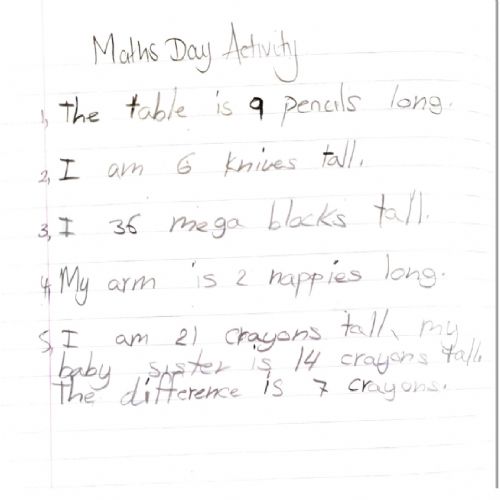 Maths Day Activity
1, The table is 9 pencils long.
2, I am 6 knives tall.
3, I 36 mega blocks tall.
4, My arm is 2 nappies long.
5, I am 21 crayons tall, my
baby sister is 14 crayons tall.
The difference is 7 crayons.